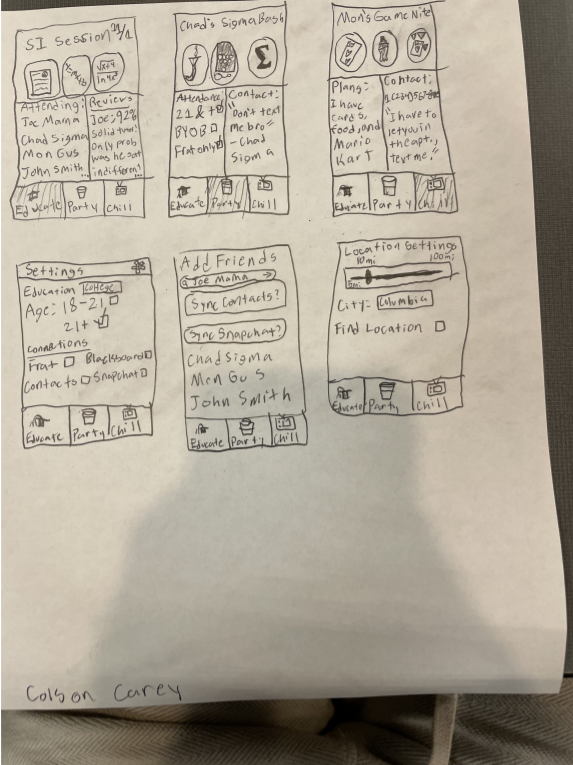 SI Session
Attending:
Joe Mama
Chad Sigma
Mon Gus
John Smith...
Reviews
Joe: 92%
Solid tutor!
Only prob
was he sat
indifferent
Educate Party Chill
Chad's Sigma Bash
Σ
Attendance:
21 & +
BYOB
Frat only
Contact:
"Don't text
me bro"
- Chad
Sigma
Educate Party Chill
Mon's Game Nite
Plans:
I have
cards,
food, and
Mario
Kart
Contact:
"I have to
let you in
the apt.,
text me."
Educate Party Chill
Settings
Education College
Age: 18-21
21+
Connections
Frat Blackboard
Contacts Snapchat
Educate Party Chill
Add Friends
Joe Mama
Sync Contacts?
Sync Snapchat?
Chad Sigma
Mon Gus
John Smith
Educate Party Chill
Location Settings
10mi 100mi
5mi
City: Columbia
Find Location
Educate Party Chill
Colson Carey